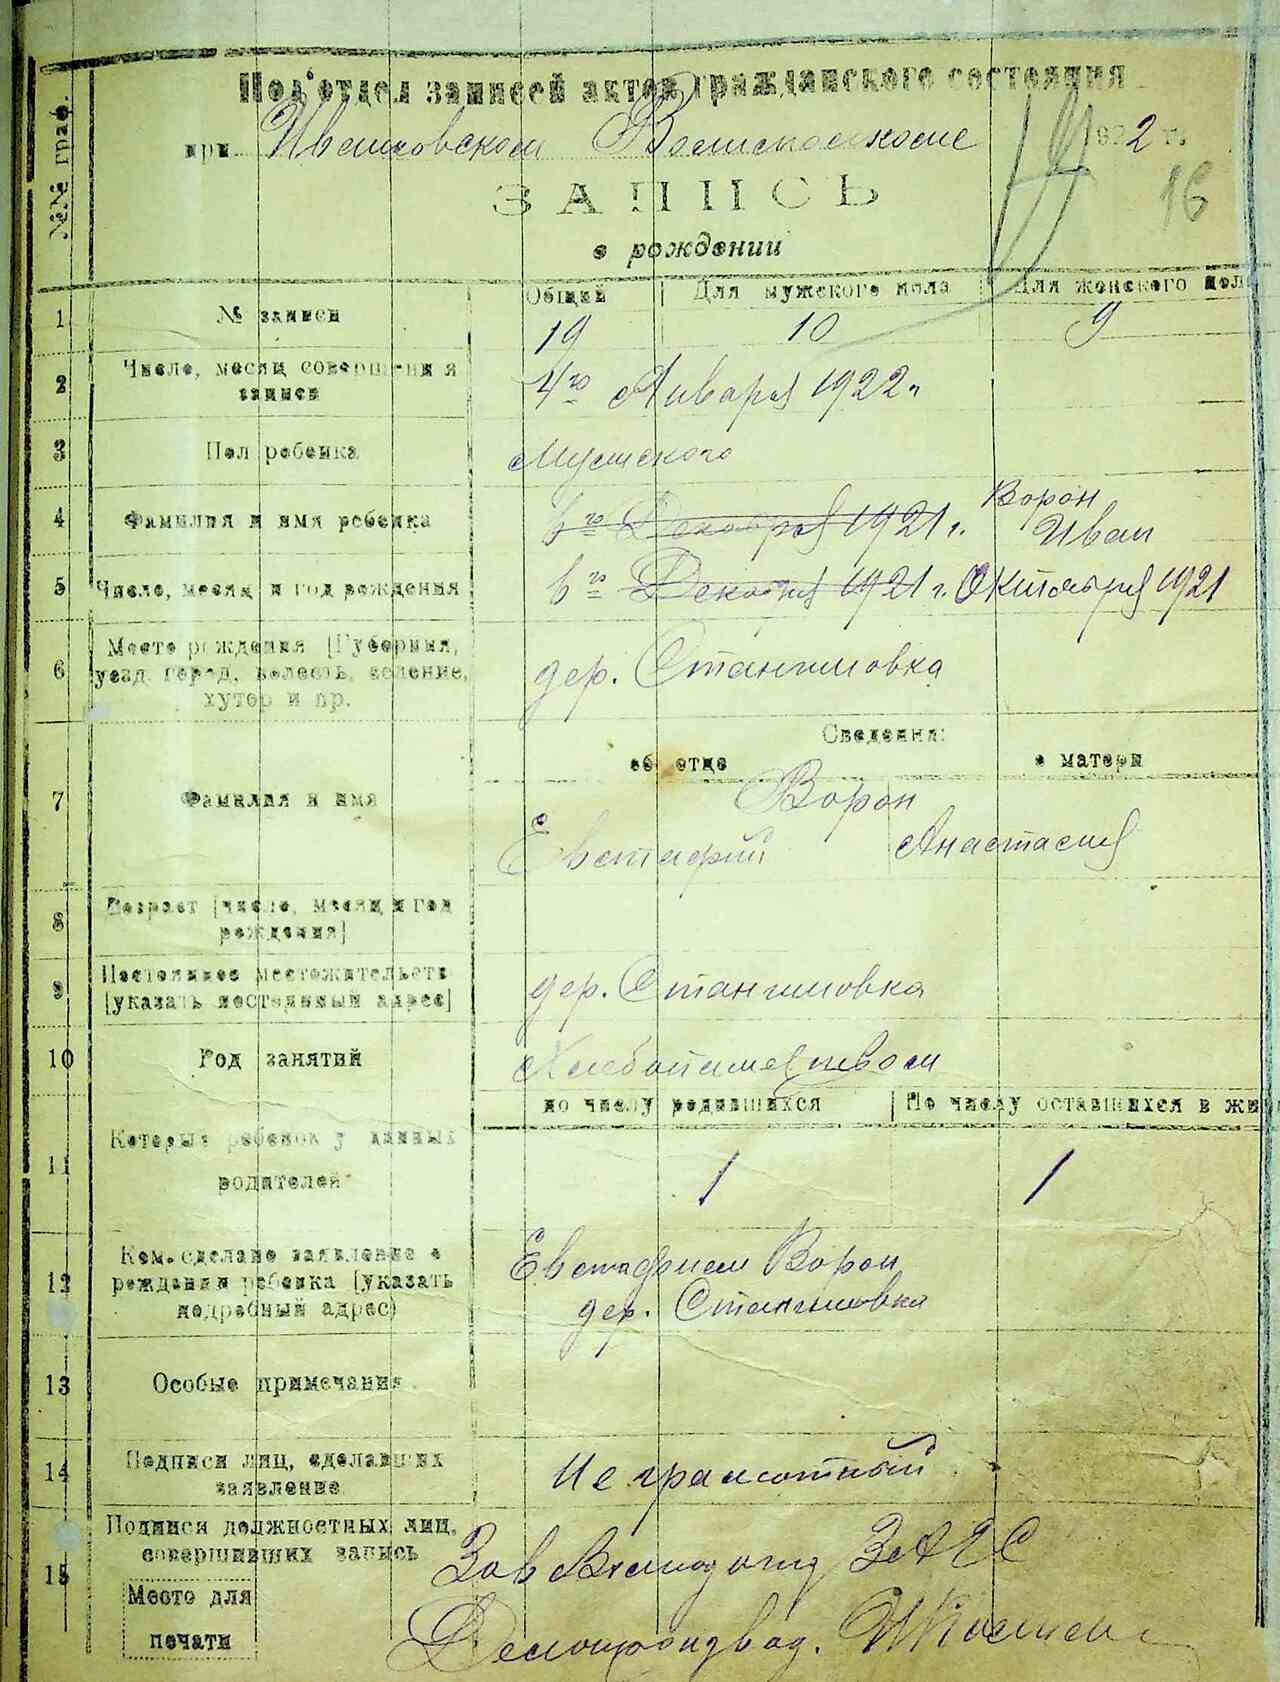 №№ граф.
Под'отдел записей актов гражданского состояния
при Волисполкоме 1922 г.
16
ЗАПИСЬ
о рождении
Общий Для мужского пола Для женского пол
1 № записи 19 10 9
2 Число, месяц совершения записи 4го Января 1922 г.
3 Пол ребенка Мужского
4 Фамилия и имя ребенка 6го Декабря 1921 г. Ворон
Иван
5 Число, месяц и год рождения 6го Декабря 1921 г. Октября 1921
6 Место рождения [Губерния,
уезд, город, волость, селение,
хутор и пр.
дер.
Сведения:
об отце о матери
7 Фамилия и имя Ворон
Евстафий Анастасия
8 Возраст [число, месяц и год
рождения]
9 Постоянное местожительств
[указать постоянный адрес]
дер.
10 Род занятий Хлебопашеством
по числу родившихся По числу оставшихся в жи
11 Который ребенок у данных
родителей
1 1
12 Кем сделано заявление о
рождении ребенка (указать
подробный адрес)
Евстафием Ворон
дер.
13 Особые примечания
14 Подписи лиц, сделавших
заявление
Не грамотный
15 Подписи должностных лиц,
совершивших запись
Зав ЗАГС
Место для
печати